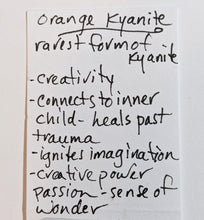 orange Kyanite
rarest form of Kyanite
-creativity
-connects to inner
child - heals past
trauma
-ignites imagination
-creative power
passion - sense of
wonder